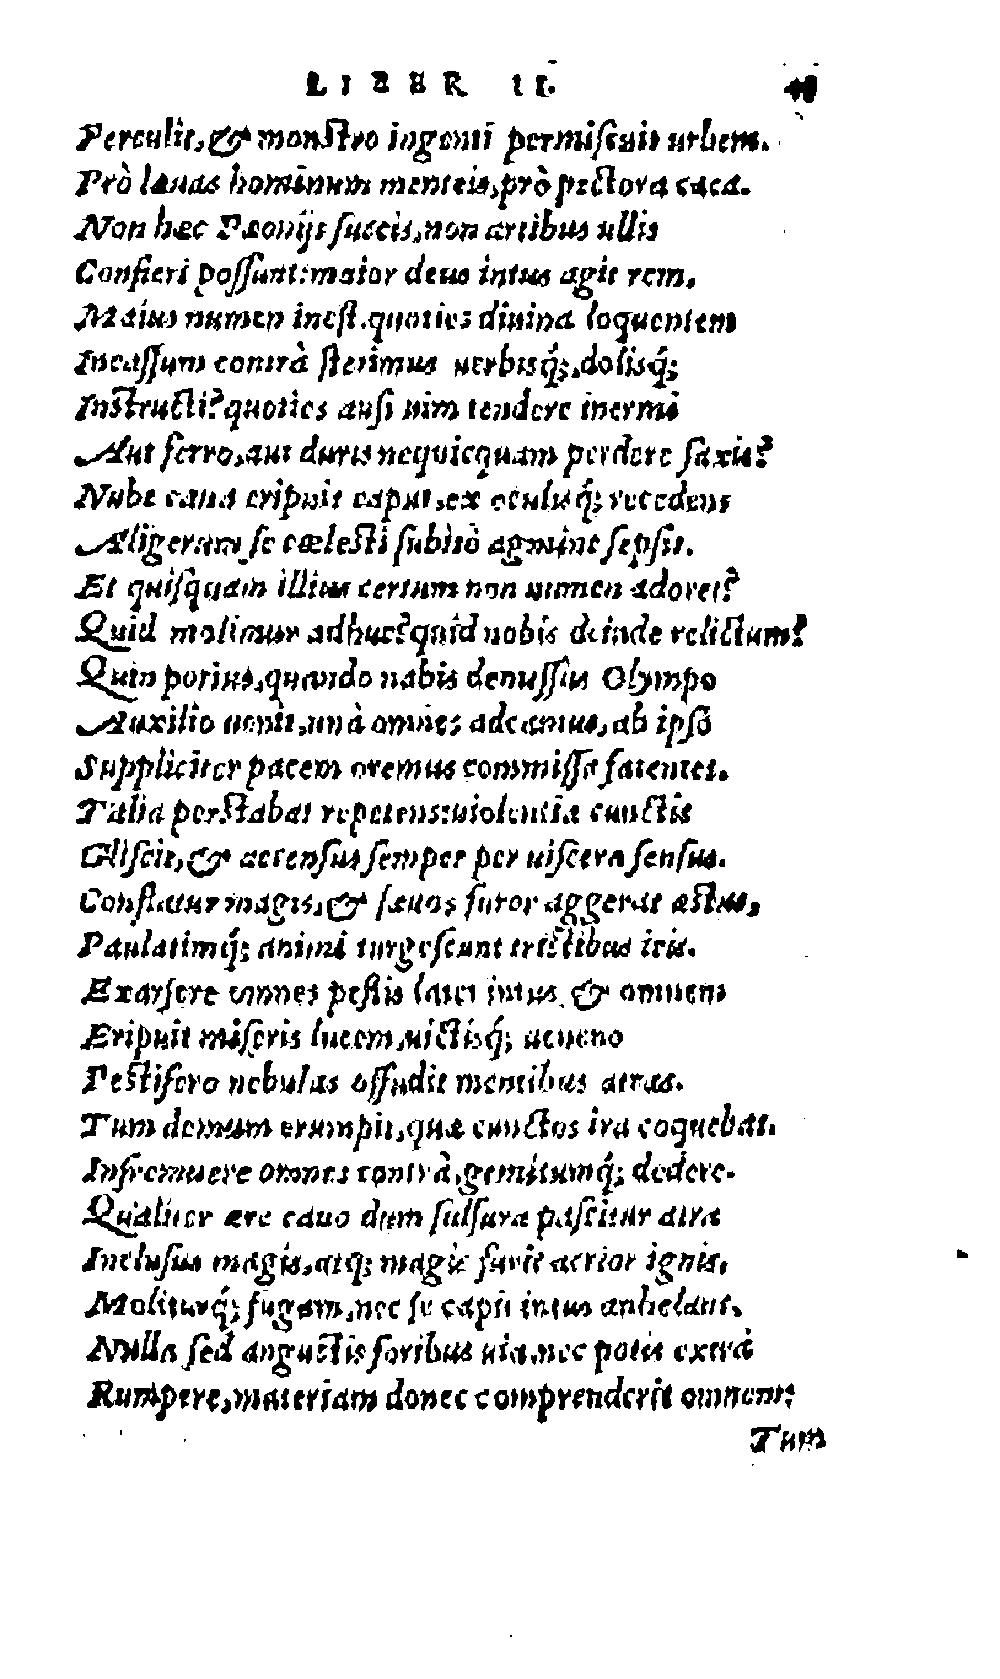 LIBER II.
Perculit, & monstro ingenti permiscuit urbem.
Prò læuas hominum menteis, prò pectora cæca.
Non hæc Pæonijs succis, non artibus ullis
Confieri possunt: maior deus intus agit rem,
Maius numen inest. quoties diuina loquentem
Incassum contrà stetimus uerbisq́; dolisq́;
Instructi? quoties ausi uim tendere inermi
Aut ferro, aut duris nequicquam perdere saxis?
Nube caua eripuit caput, ex oculisq́; recedens
Aligerûm se cœlesti subitò agmine sepsit.
Et quisquam illius certum non numen adoret?
Quid molimur adhuc? quid nobis deinde relictum?
Quin potius, quando nobis demissus Olympo
Auxilio uenit, unà omnes adeamus, ab ipso
Suppliciter pacem oremus commissa fatentes.
Talia perstabat repetens: uiolentia cunctis
Gliscit, & accensus semper per uiscera sensus.
Conflatur magis, & sæuos furor aggerat æstus,
Paulatimq́; animi turgescunt tristibus iris.
Exarsere omnes pestis latet intus, & omnem
Eripuit miseris lucem, uictisq́; ueneno
Pestifero nebulas offudit mentibus atras.
Tum demum erumpit, quæ cunctos ira coquebat.
Infremuere omnes contrà, gemitumq́; dedere.
Qualiter ære cauo dum sulfura pascitur atra
Inclusus magis, atq; magis furit acrior ignis,
Moliturq́; fugam, nec se capit intus anhelans,
Nulla sed angustis foribus uia, nec potis extrà
Rumpere, materiam donec comprenderit omnem:
Tum